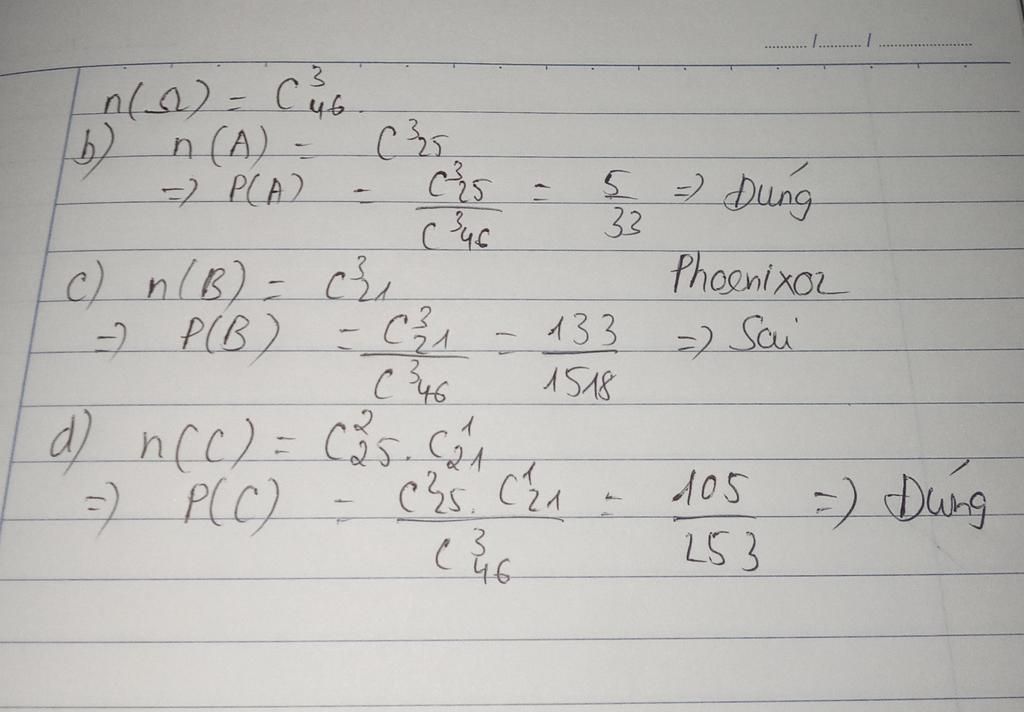 ......../......../................
n(Ω) = C³₄₆.
b) n(A) = C³₂₅
=> P(A) = C³₂₅ / C³₄₆ = 5/33 => Đúng
c) n(B) = C³₂₁ Phoenixoz
=> P(B) = C³₂₁ / C³₄₆ = 133/1518 => Sai
d) n(C) = C²₂₅ . C¹₂₁
=> P(C) = C²₂₅ . C¹₂₁ / C³₄₆ = 105/253 => Đúng